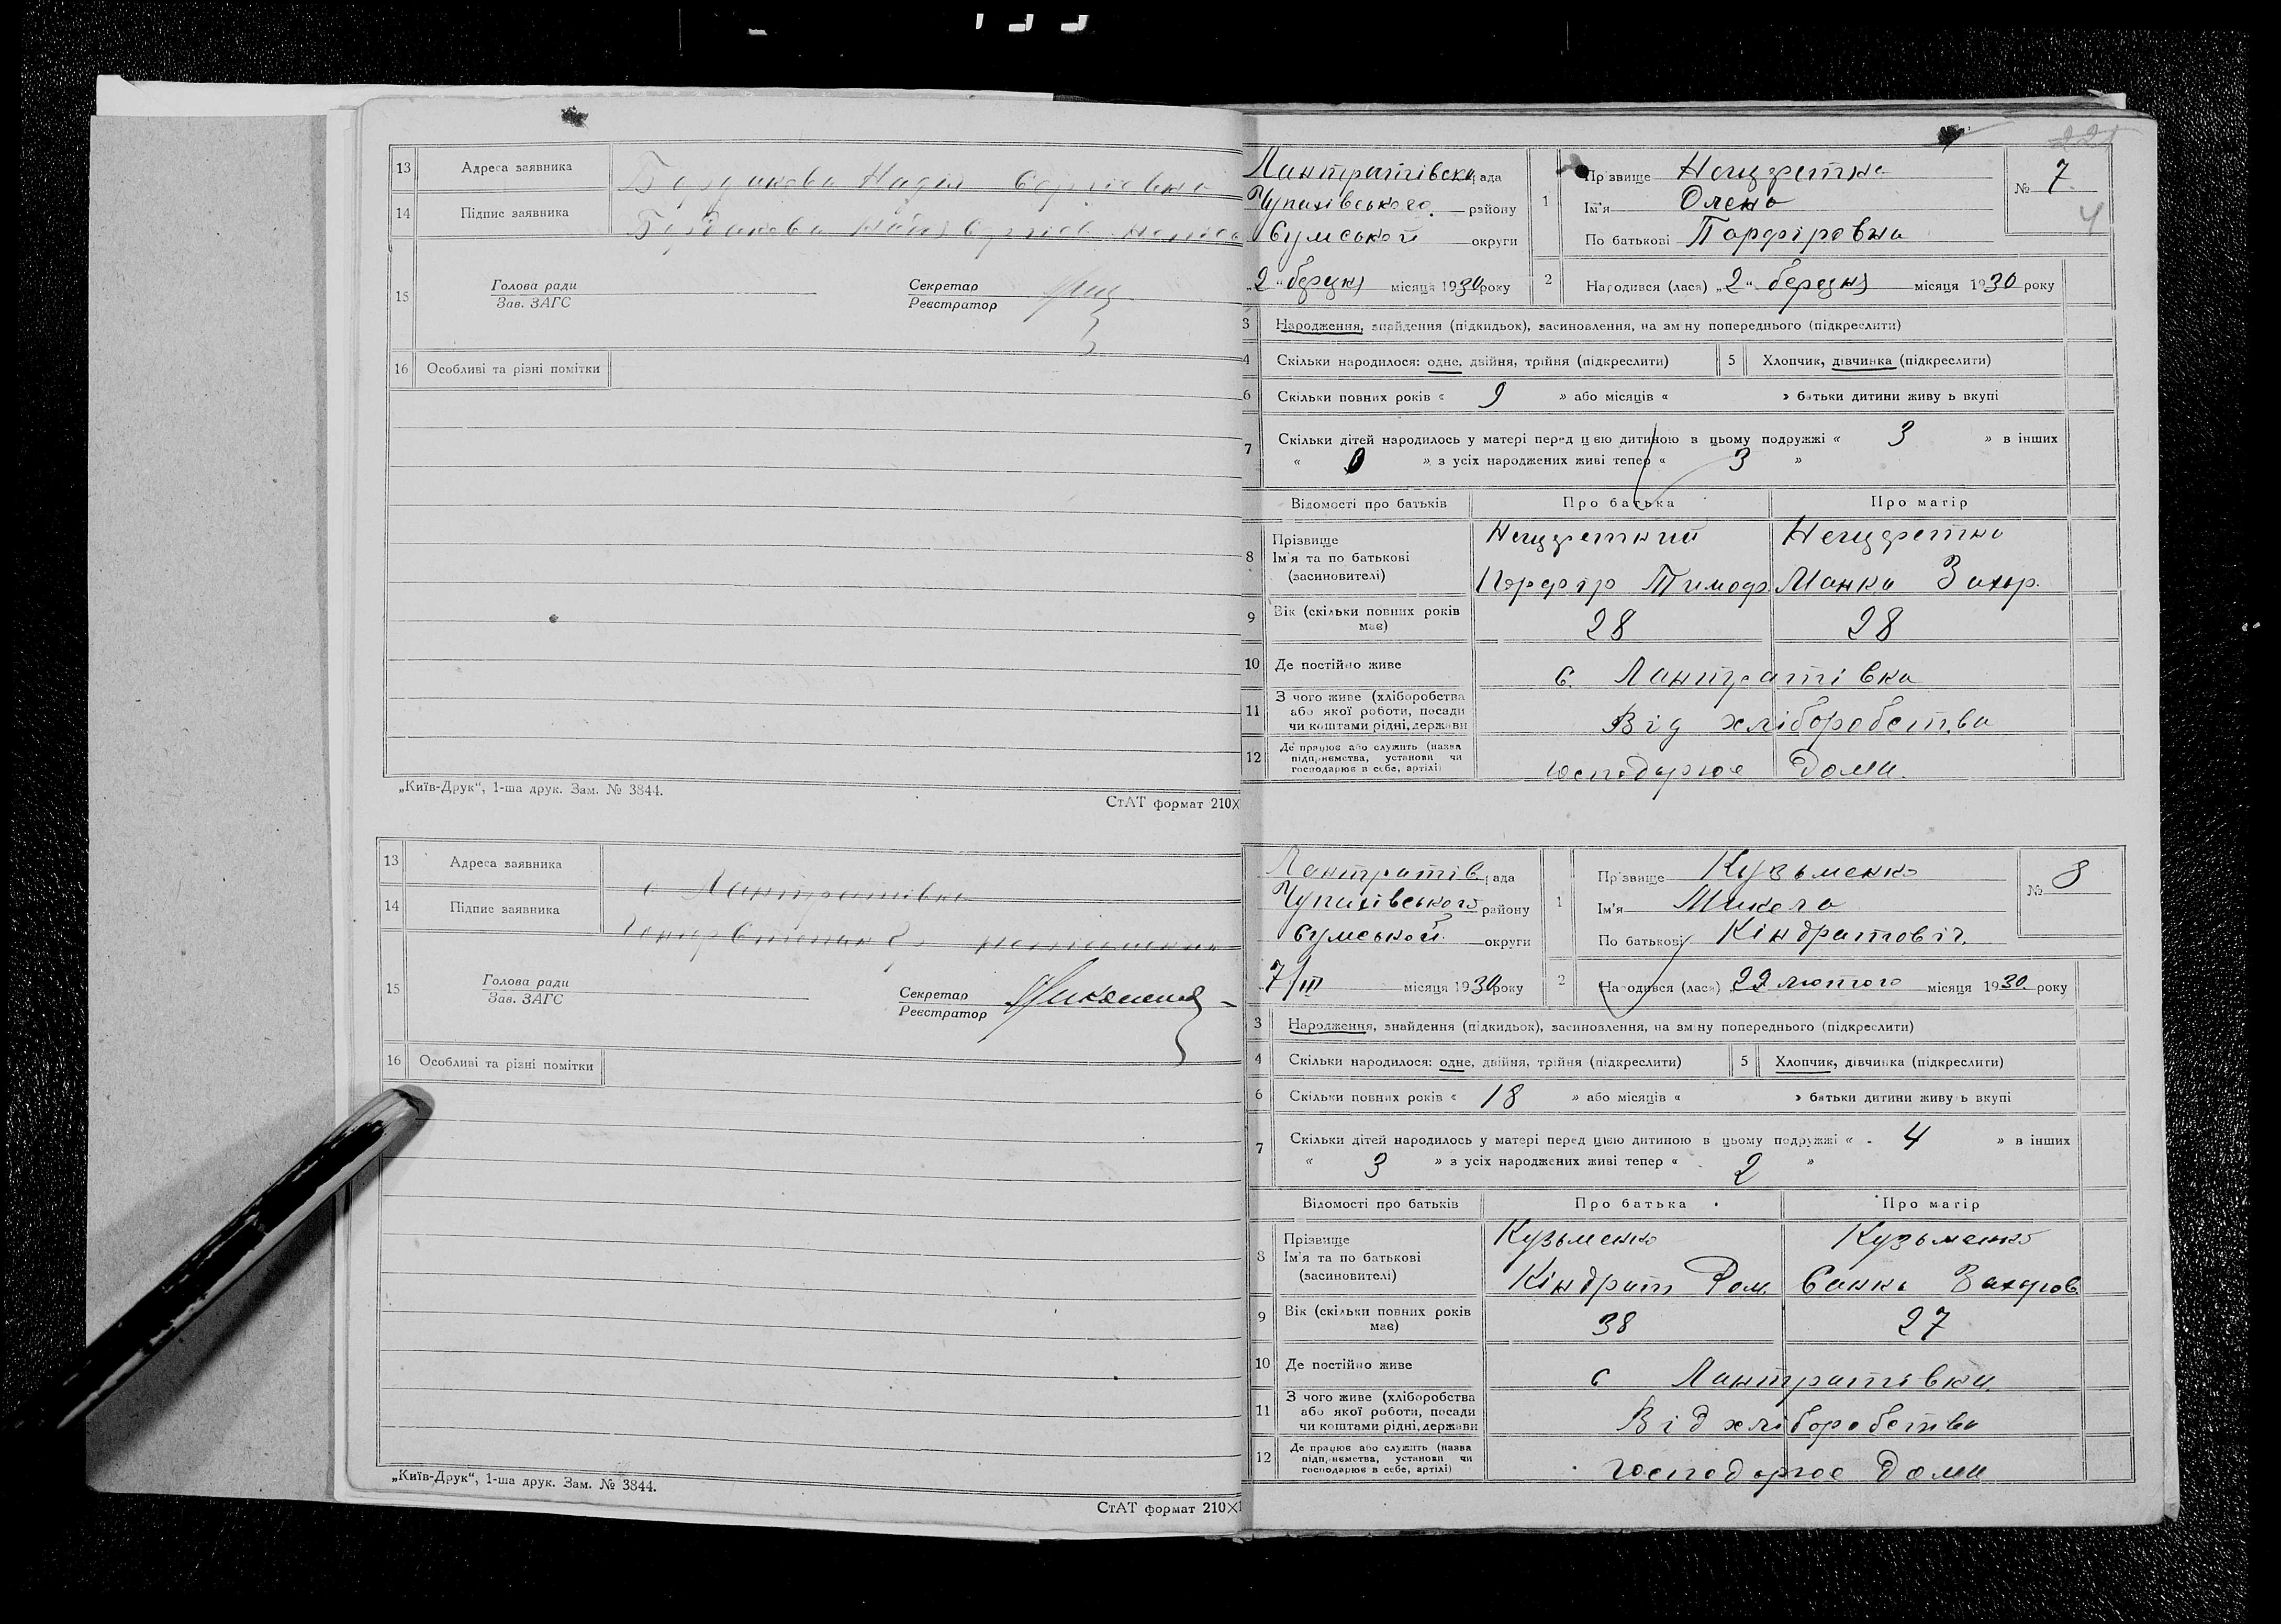 13 Адреса заявника Надія Сергіевна
14 Підпис заявника
15 Голова ради
Зав. ЗАГС
Секретар
Реєстратор
16 Особливі та різні помітки
„Київ-Друк“, 1-ша друк. Зам. № 3844.
СтАТ формат 210X
13 Адреса заявника с Лантратівка
14 Підпис заявника
15 Голова ради
Зав. ЗАГС
Секретар
Реєстратор
16 Особливі та різні помітки
„Київ-Друк“, 1-ша друк. Зам. № 3844.
СтАТ формат 210X1
221
Лантратівська рада
Чупахівського району
Сумської округи
„2“ березня місяця 1930 року
1 Прізвище
Ім'я Олена
По батькові Порфіровна
№ 7
4
2 Народився (лася) „2“ березня місяця 1930 року
3 Народження, знайдення (підкидьок), засиновлення, на зміну попереднього (підкреслити)
4 Скільки народилося: одне, двійня, трійня (підкреслити) 5 Хлопчик, дівчинка (підкреслити)
6 Скільки повних років « 9 » або місяців « » батьки дитини живуть вкупі
7 Скільки дітей народилось у матері перед цією дитиною в цьому подружжі « 3 » в інших
« 0 » з усіх народжених живі тепер « 3 »
Відомості про батьків Про батька Про матір
8 Прізвище
Ім'я та по батькові
(засиновителі) Порфір Тимоф. Манка Захар.
9 Вік (скільки повних років має) 28 28
10 Де постійно живе с. Лантратівка
11 З чого живе (хліборобства
або якої роботи, посади
чи коштами рідні, держави Від хліборобства
12 Де працює або служить (назва
підприємства, установи чи
господарює в себе, артілі) господарює дома.
Лантратів рада
Чупахівського району
Сумської округи
7/III місяця 1930 року
1 Прізвище Кузьменко
Ім'я Микола
По батькові Кіндратовіч.
№ 8
2 Народився (лася) 22 лютого місяця 1930 року
3 Народження, знайдення (підкидьок), засиновлення, на зміну попереднього (підкреслити)
4 Скільки народилося: одне, двійня, трійня (підкреслити) 5 Хлопчик, дівчинка (підкреслити)
6 Скільки повних років « 18 » або місяців « » батьки дитини живуть вкупі
7 Скільки дітей народилось у матері перед цією дитиною в цьому подружжі « 4 » в інших
« 3 » з усіх народжених живі тепер « 2 »
Відомості про батьків Про батька Про матір
8 Прізвище Кузьменко Кузьменко
Ім'я та по батькові
(засиновителі) Кіндрат Ром. Санка Захаров
9 Вік (скільки повних років має) 38 27
10 Де постійно живе с Лантратівка
11 З чого живе (хліборобства
або якої роботи, посади
чи коштами рідні, держави Від хліборобства
12 Де працює або служить (назва
підприємства, установи чи
господарює в себе, артілі) господарює дома